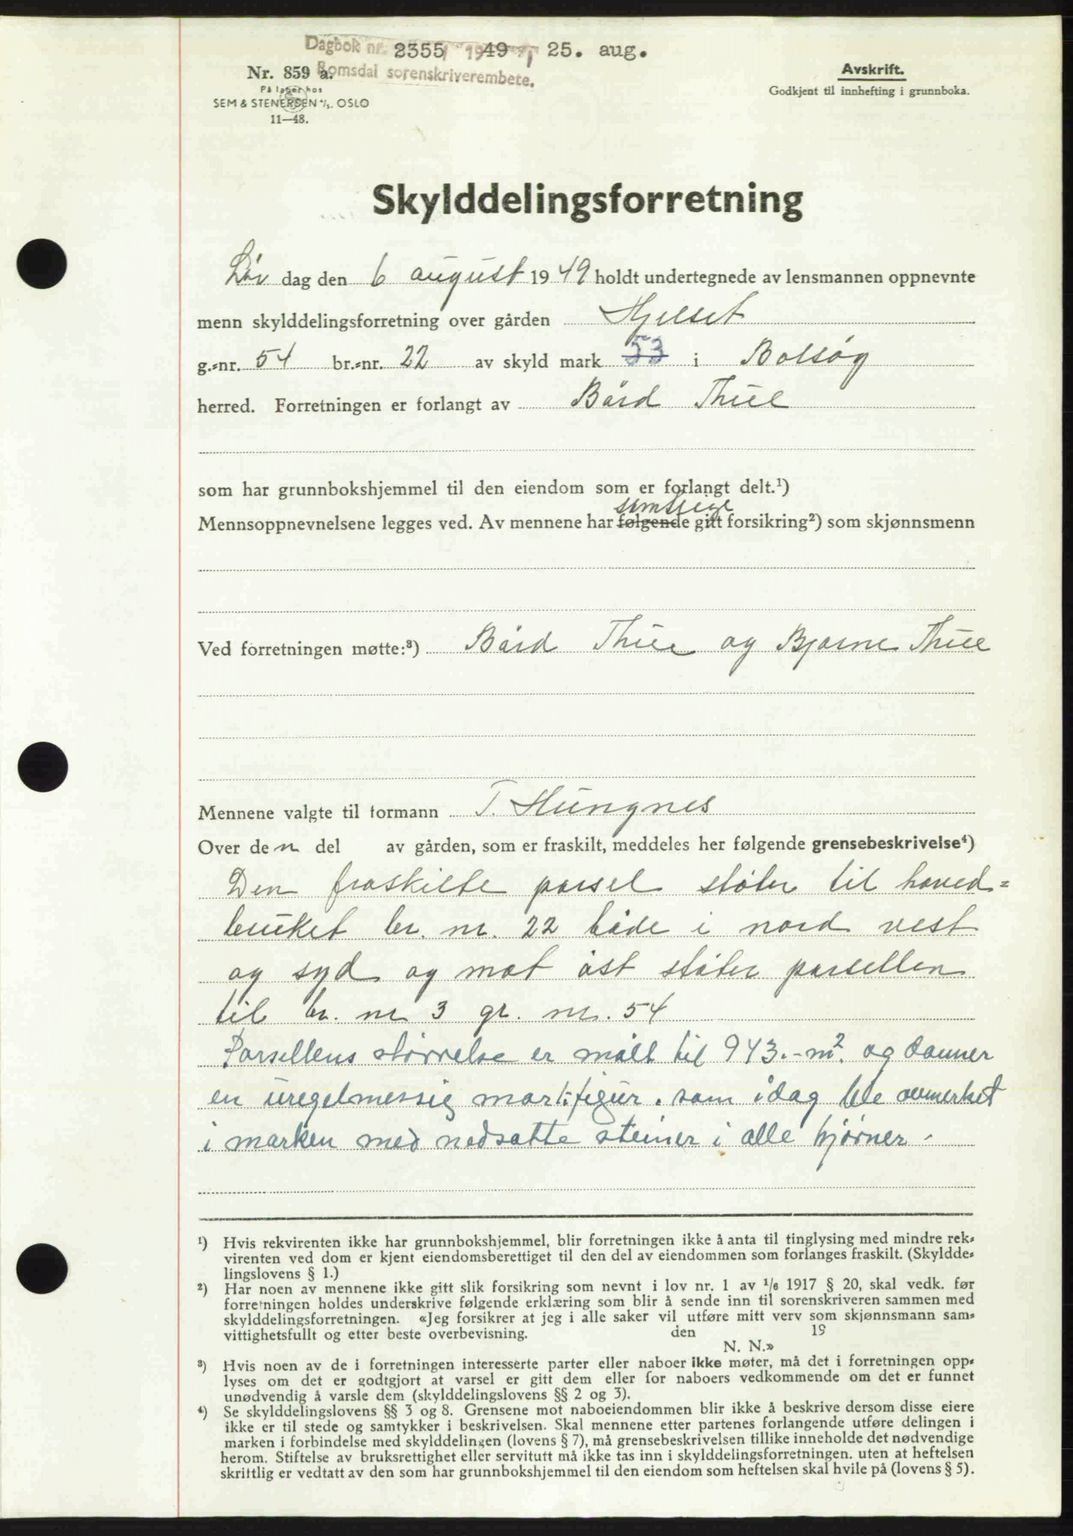 Dagbok nr. 2355 1949 25. aug.
Romsdal sorenskriverembete.
Nr. 859 a.
På lager hos
SEM & STENERSEN A/S. OSLO
11—48.
Avskrift.
Godkjent til innhefting i grunnboka.
Skylddelingsforretning
Lør dag den 6 august 1949 holdt undertegnede av lensmannen oppnevnte
menn skylddelingsforretning over gården Hjelset
g.-nr. 54 br.-nr. 22 av skyld mark 53 i Bolsøy
herred. Forretningen er forlangt av Bård Thue
som har grunnbokshjemmel til den eiendom som er forlangt delt.¹)
samtlige
Mennsoppnevnelsene legges ved. Av mennene har følgende gitt forsikring²) som skjønnsmenn
Ved forretningen møtte:³) Bård Thue og Bjarne Thue
Mennene valgte til formann T. Hungnes
Over den del av gården, som er fraskilt, meddeles her følgende grensebeskrivelse⁴)
Den fraskilte parsel støter til hoved-
bruket br. nr. 22 både i nord vest
og syd og mot øst støter parsellen
til br. nr 3 gr. nr. 54
Parsellens størrelse er målt til 943.- m². og danner
en uregelmessig figur. som idag ble avmerket
i marken med nedsatte steiner i alle hjørner.
¹) Hvis rekvirenten ikke har grunnbokshjemmel, blir forretningen ikke å anta til tinglysing med mindre rek-
virenten ved dom er kjent eiendomsberettiget til den del av eiendommen som forlanges fraskilt. (Skyldde-
lingslovens § 1.)
²) Har noen av mennene ikke gitt slik forsikring som nevnt i lov nr. 1 av 1/6 1917 § 20, skal vedk. før
forretningen holdes underskrive følgende erklæring som blir å sende inn til sorenskriveren sammen med
skylddelingsforretningen. «Jeg forsikrer at jeg i alle saker vil utføre mitt verv som skjønnsmann sam-
vittighetsfullt og etter beste overbevisning. den 19
N. N.»
³) Hvis noen av de i forretningen interesserte parter eller naboer ikke møter, må det i forretningen opp-
lyses om det er godtgjort at varsel er gitt dem eller for naboers vedkommende om det er funnet
unødvendig å varsle dem (skylddelingslovens §§ 2 og 3).
⁴) Se skylddelingslovens §§ 3 og 8. Grensene mot naboeiendommen blir ikke å beskrive dersom disse eiere
ikke er til stede og samtykker i beskrivelsen. Skal mennene etter partenes forlangende utføre delingen i
marken i forbindelse med skylddelingen (lovens § 7), må grensebeskrivelsen tillike inneholde det nødvendige
herom. Stiftelse av bruksrettighet eller servitutt må ikke tas inn i skylddelingsforretningen, uten at heftelsen
skriftlig er vedtatt av den som har grunnbokshjemmel til den eiendom som heftelsen skal hvile på (lovens § 5).